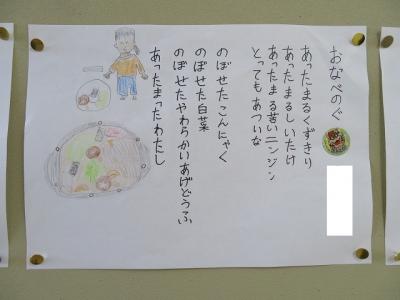 おなべのぐ
あったまるくずきり
あったまるしいたけ
あったまる苦いニンジン
とってもあついな
のぼせたこんにゃく
のぼせた白菜
のぼせたやわらかいあげどうふ
あったまったわたし